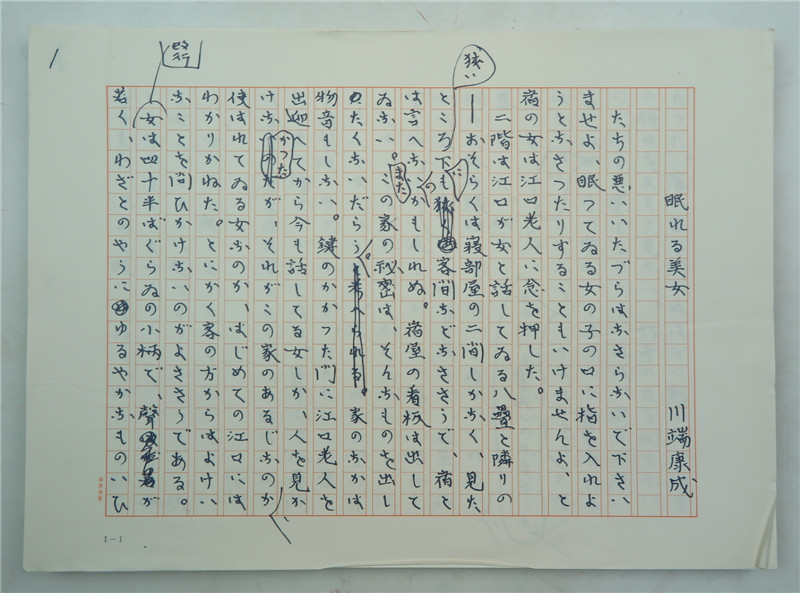 1
眠れる美女　川端康成
たちの悪いいたづらはなさらないで下さい
ませよ、眠つてゐる女の子の口に指を入れよ
うとなさつたりすることもいけませんよ、と
宿の女は江口老人に念を押した。
二階は江口が女と話してゐる八疊と隣りの
―おそらくは寝部屋の二間しかなく、見た
ところ狭い下にも客間などなささうで、宿と
は言へないかもしれぬ。宿屋の看板は出して
ゐない。またこの家の秘密は、そんなものを出し
にくいだらう。家のなかは
物音もしない。鍵のかかつた門に江口老人を
出迎へてから今も話してる女しか、人を見か
けなかつたが、それがこの家のあるじなのか、
使はれてゐる女なのか、はじめての江口には
わかりかねた。とにかく客の方からはよけい
なことを問ひかけないのがよささうである。
改行
女は四十半ばぐらゐの小柄で、聲が
若く、わざとのやうにゆるやかなものいひ
1－1